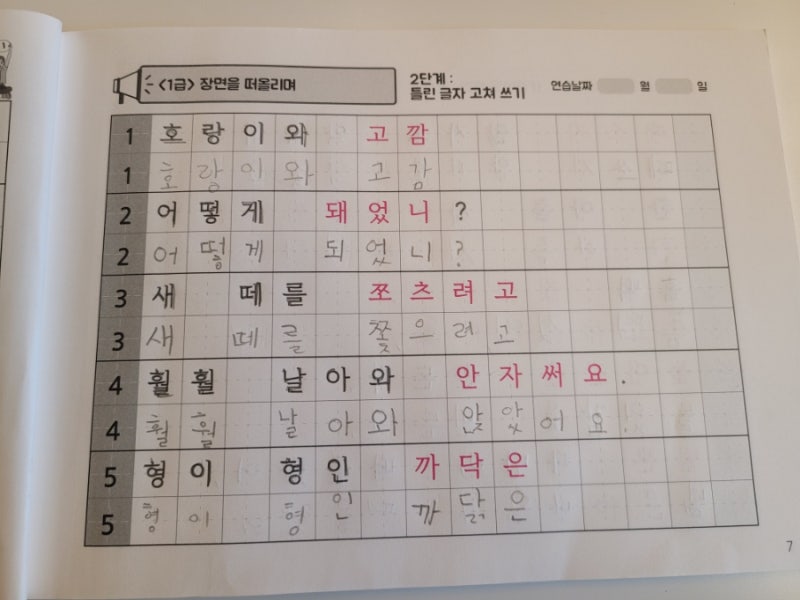 <1급> 장면을 떠올리며
2단계 :
틀린 글자 고쳐 쓰기
연습날짜 월 일
1 호랑이와 고깜
1 호랑이와 고감
2 어떻게 돼었니?
2 어떻게 되었니?
3 새 떼를 쪼츠려고
3 새 떼를 쫓으려고
4 훨훨 날아와 안자써요.
4 훨훨 날아와 앉았어요.
5 형이 형인 까닥은
5 형이 형인 까닭은
7